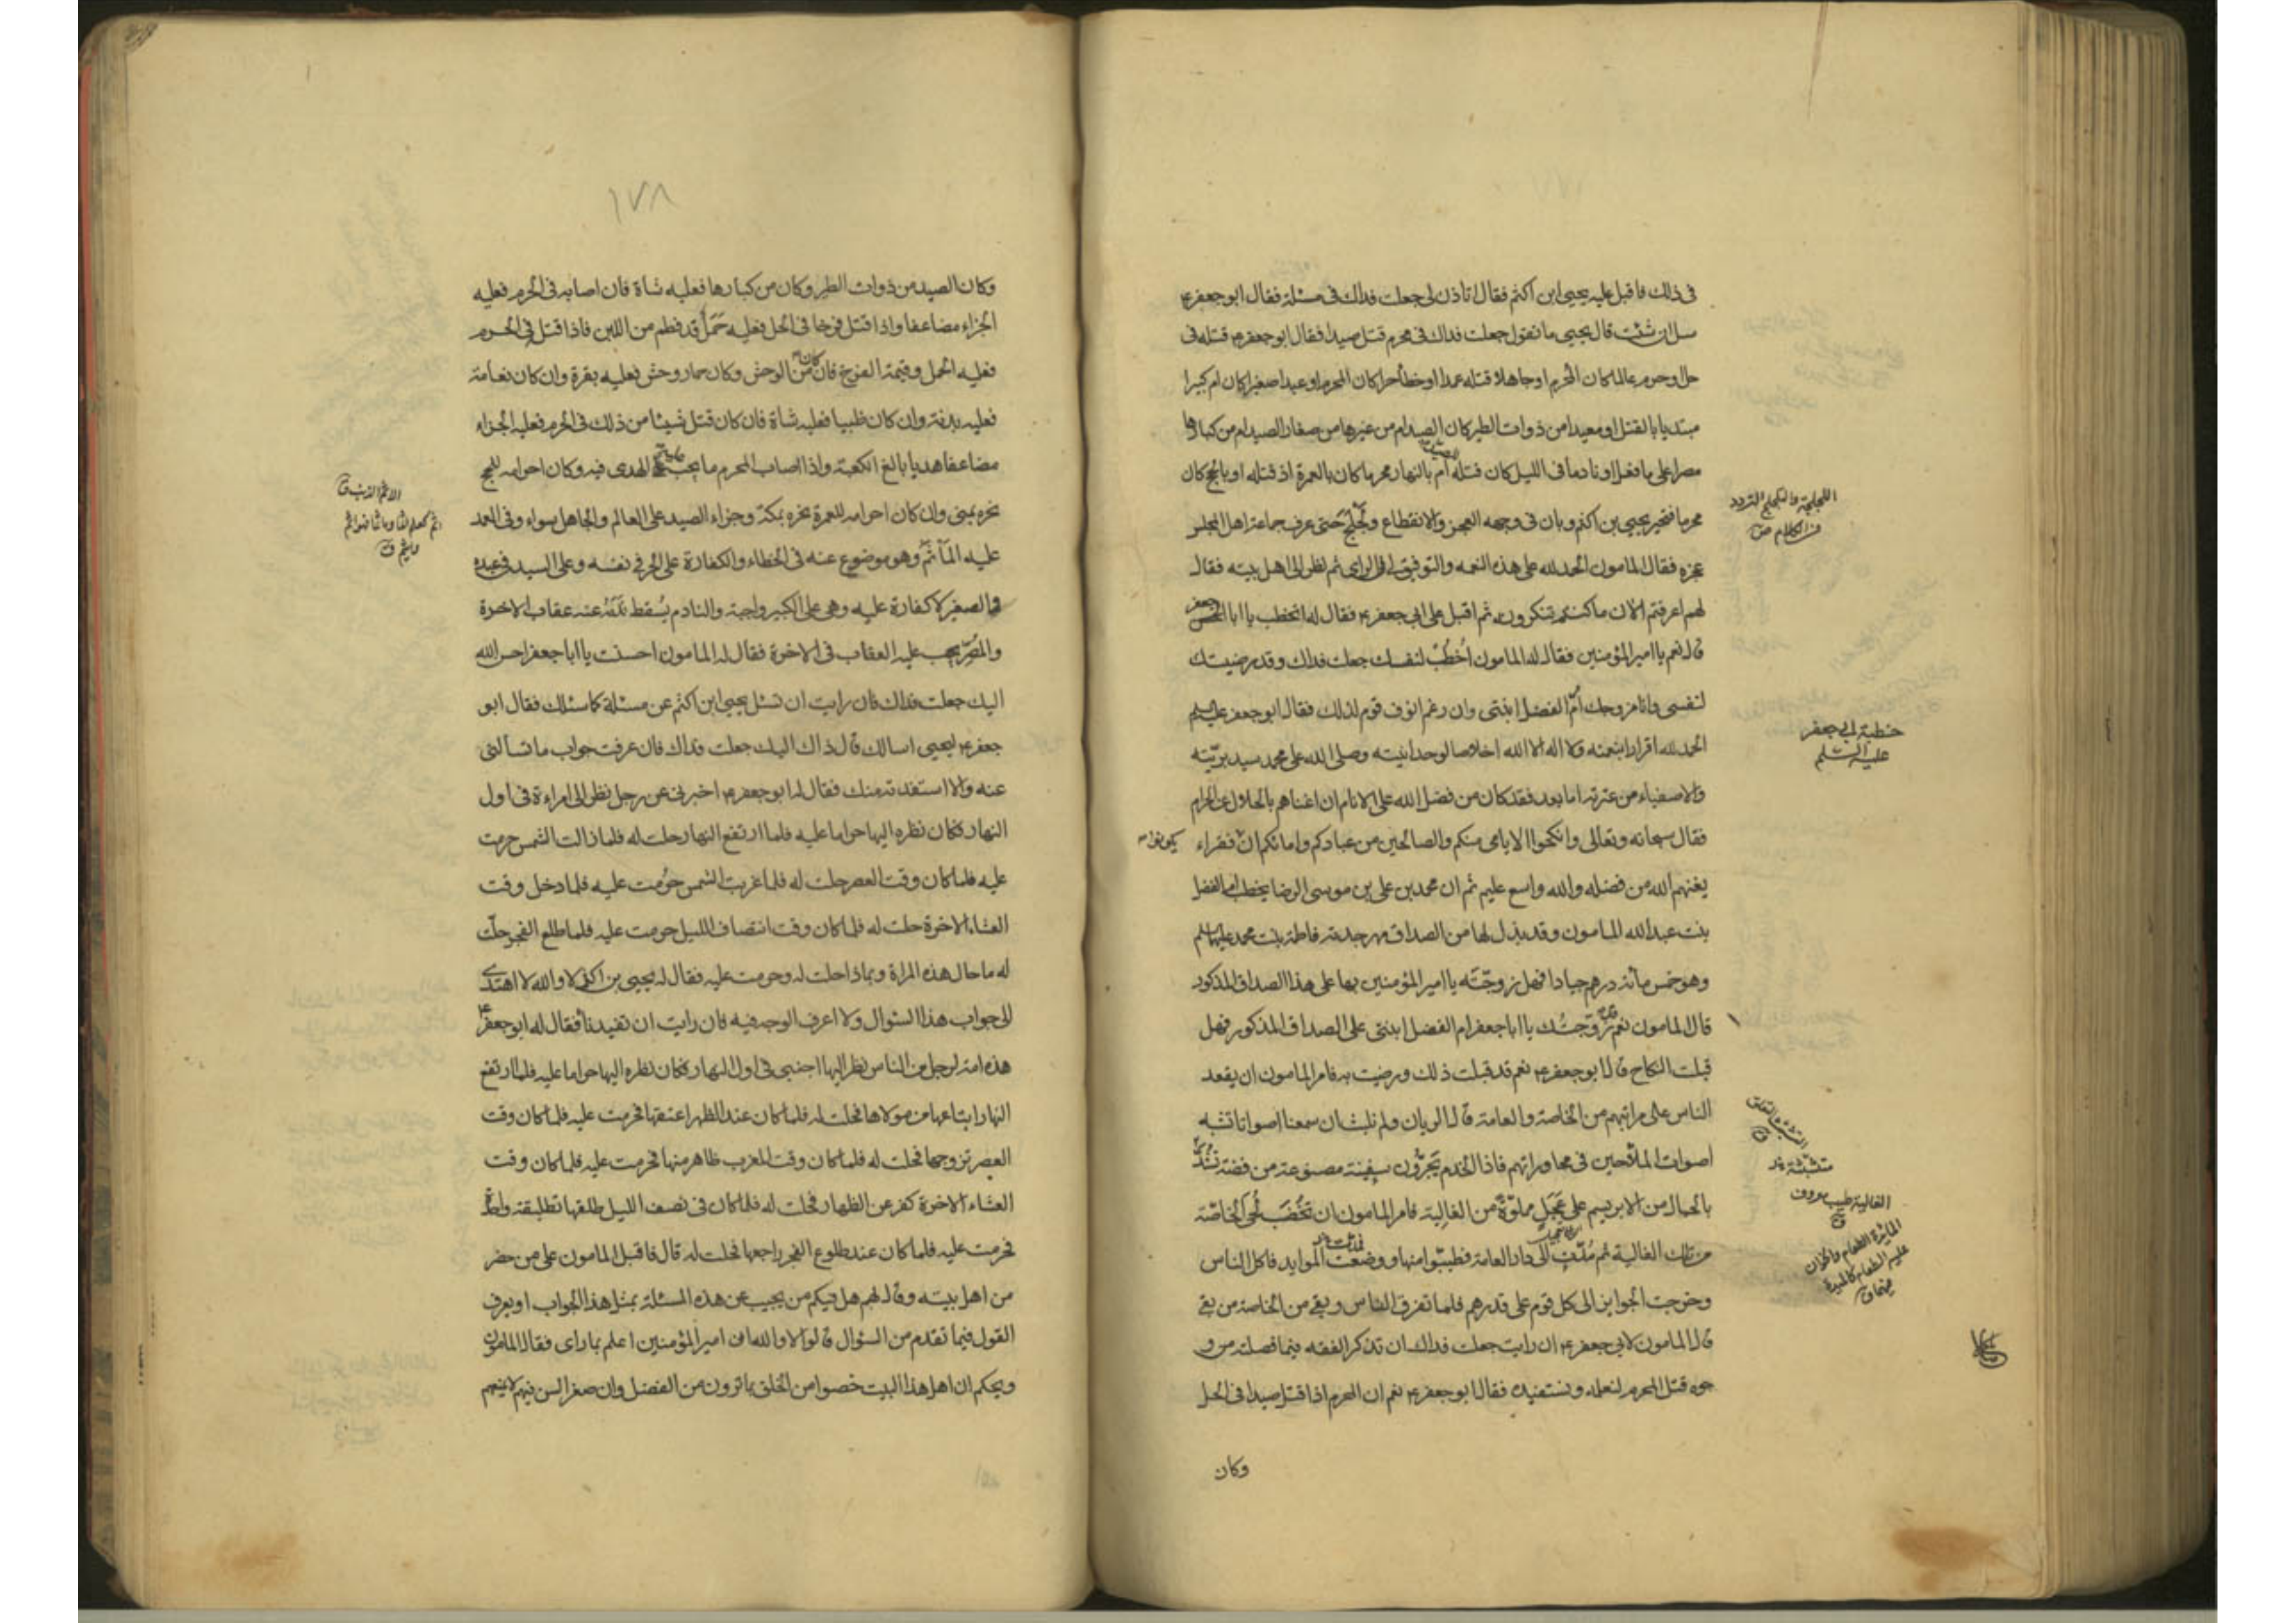 فى ذلك فاقبل عليه يحيى ابن اكثم فقال اتاذن لى جعلت فداك فى مسئلة فقال ابو جعفر ع
سل ان شئت قال يحيى ما تقول جعلت فداك فى محرم قتل صيدا فقال ابو جعفر ع قتله فى
حل او حرم عالما كان المحرم او جاهلا قتله عمدا او خطأ حرا كان المحرم او عبدا صغيرا كان ام كبيرا
مبتديا بالقتل او معيدا من ذوات الطير كان الصيد ام من غيرها من صغار الصيد ام من كبارها
مصرا على ما فعل او نادما فى الليل كان قتله للصيد ام بالنهار محرما كان بالعمرة اذ قتله او بالحج كان
محرما فتحير يحيى بن اكثم وبان فى وجهه العجز والانقطاع ولجلج حتى عرف جماعة اهل المجلس
اللجلجة والتلجلج التردد
فى الكلام ص
عجزه فقال المامون الحمد لله على هذه النعمه والتوفيق لى فى الراى ثم نظر الى اهل بيته فقال
لهم اعرفتم الآن ما كنتم تنكرونه ثم اقبل على ابى جعفر ع فقال له اتخطب يا ابا جعفر
قال نعم يا امير المؤمنين فقال له المامون اخطب لنفسك جعلت فداك وقد رضيتك
لنفسى وانا مزوجك ام الفضل ابنتى وان رغم انوف قوم لذلك فقال ابو جعفر عليه السلم
خطبة ابى جعفر
عليه السلم
الحمد لله اقرارا بنعمته ولا اله الا الله اخلاصا لوحدانيته وصلى الله على محمد سيد بريّته
والاصفياء من عترته اما بعد فقد كان من فضل الله على الانام ان اغناهم بالحلال عن الحرام
فقال سبحانه وتعالى وانكحوا الايامى منكم والصالحين من عبادكم وامائكم ان فقراء
يكونوا
يغنهم الله من فضله والله واسع عليم ثم ان محمد بن على بن موسى الرضا يخطب ام الفضل
بنت عبد الله المامون وقد بذل لها من الصداق مهر جدته فاطمة بنت محمد عليهما السلم
وهو خمس مائة درهم جيادا فهل زوجّته يا امير المؤمنين بها على هذا الصداق المذكور
قال المامون نعم قد زوّجتك يا ابا جعفر ام الفضل ابنتى على الصداق المذكور فهل
قبلت النكاح قال ابو جعفر ع نعم قد قبلت ذلك ورضيت به فامر المامون ان يقعد
الناس على مراتبهم من الخاصة والعامة قال الريان ولم نلبث ان سمعنا اصواتا تشبه
اصوات الملّاحين فى محاوراتهم فاذا الخدم يجرّون سفينة مصنوعة من فضة تشدّ
بالحبال من الابريسم على عجل مملوّة من الغالية فامر المامون ان تخضب لحى الخاصّة
الغالية طيب معروف
من تلك الغالية ثم مُدّت الى دار العامة فطيبّوا منها ووضعت الموايد فاكل الناس
المائدة الطعام والخوان
عليه الطعام كالميدة
فيهما ق
وخرجت الجوايز الى كل قوم على قدرهم فلما تفرق الناس وبقى من الخاصة من بقى
قال المامون لابى جعفر ع ان رايت جعلت فداك ان تذكر الفقه فيما فصلته من و
جوه قتل المحرم لنعلمه ونستفيده فقال ابو جعفر ع نعم ان المحرم اذا قتل صيدا فى الحل
وكان
١٧٨
وكان الصيد من ذوات الطير وكان من كبارها فعليه شاة فان اصابه فى الحرم فعليه
الجزاء مضاعفا واذا قتل فرخا فى الحل فعليه حَمَل قد فطم من اللبن فاذا قتل فى الحرم
فعليه الحمل وقيمة الفرخ فان كان من الوحش وكان حمار وحش فعليه بقرة وان كان نعامة
فعليه بدنة وان كان ظبيا فعليه شاة فان كان قتل شيئا من ذلك فى الحرم فعليه الجزاء
مضاعفا هديا بالغ الكعبة واذا اصاب المحرم ما يجب عليه الهدى فيه وكان احرامه للحج
نحره بمنى وان كان احرامه للعمرة نحره بمكة وجزاء الصيد على العالم والجاهل سواء وفى العمد
الاثم الذنب ق
عليه المأثم وهو موضوع عنه فى الخطاء والكفارة على الحر فى نفسه وعلى السيد فى عبده
والصغير لا كفارة عليه وهى على الكبير واجبة والنادم يُسقط ندمه عنه عقاب الاخرة
والمُصرّ يجب عليه العقاب فى الاخرة فقال له المامون احسنت يا ابا جعفر احسن الله
اليك جعلت فداك فان رايت ان تسئل يحيى ابن اكثم عن مسئلة كما سئلك فقال ابو
جعفر ع ليحيى اسالك قال ذاك اليك جعلت فداك فان عرفت جواب ما تسألنى
عنه والا استفدته منك فقال له ابو جعفر ع اخبرنى عن رجل نظر الى امراءة فى اول
النهار فكان نظره اليها حراما عليه فلما ارتفع النهار حلت له فلما زالت الشمس حرمت
عليه فلما كان وقت العصر حلت له فلما غربت الشمس حرُمت عليه فلما دخل وقت
العشاء الاخرة حلت له فلما كان وقت انتصاف الليل حرمت عليه فلما طلع الفجر حلّت
له ما حال هذه المراة وبماذا حلت له وحرمت عليه فقال له يحيى بن اكثم لا والله لا اهتدى
الى جواب هذا السؤال ولا اعرف الوجه فيه فان رايت ان تفيدناه فقال له ابو جعفر ع
هذه امة لرجل من الناس نظر اليها اجنبى فى اول النهار فكان نظره اليها حراما عليه فلما ارتفع
النهار ابتاعها من مولاها فحلت له فلما كان عند الظهر اعتقها فحرمت عليه فلما كان وقت
العصر تزوجها فحلت له فلما كان وقت المغرب ظاهر منها فحرمت عليه فلما كان وقت
العشاء الاخرة كفر عن الظهار فحلت له فلما كان فى نصف الليل طلقها تطليقة واحدة
فحرمت عليه فلما كان عند طلوع الفجر راجعها فحلت له قال فاقبل المامون على من حضر
من اهل بيته وقال لهم هل فيكم من يجيب عن هذه المسئلة بمثل هذا الجواب او يعرف
القول فيما تقدم من السؤال قالوا لا والله ان امير المؤمنين اعلم بما راى فقال المامون
ويحكم ان اهل هذا البيت خصوا من الخلق بما ترون من الفضل وان صغر السن فيهم لا يمنعهم